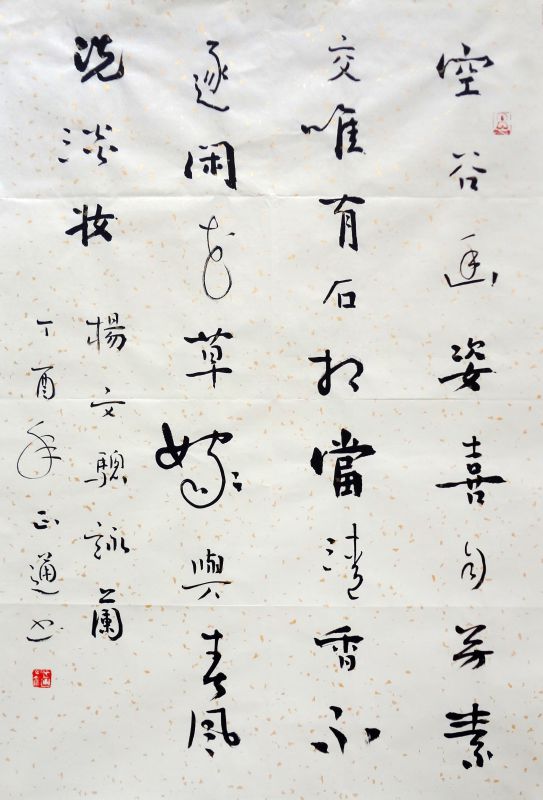 空谷幽姿喜自芳素
交唯有石相當清香不
逐閑花草嫁與春風
洗淡妝 楊文驄詠蘭
丁酉年正通书